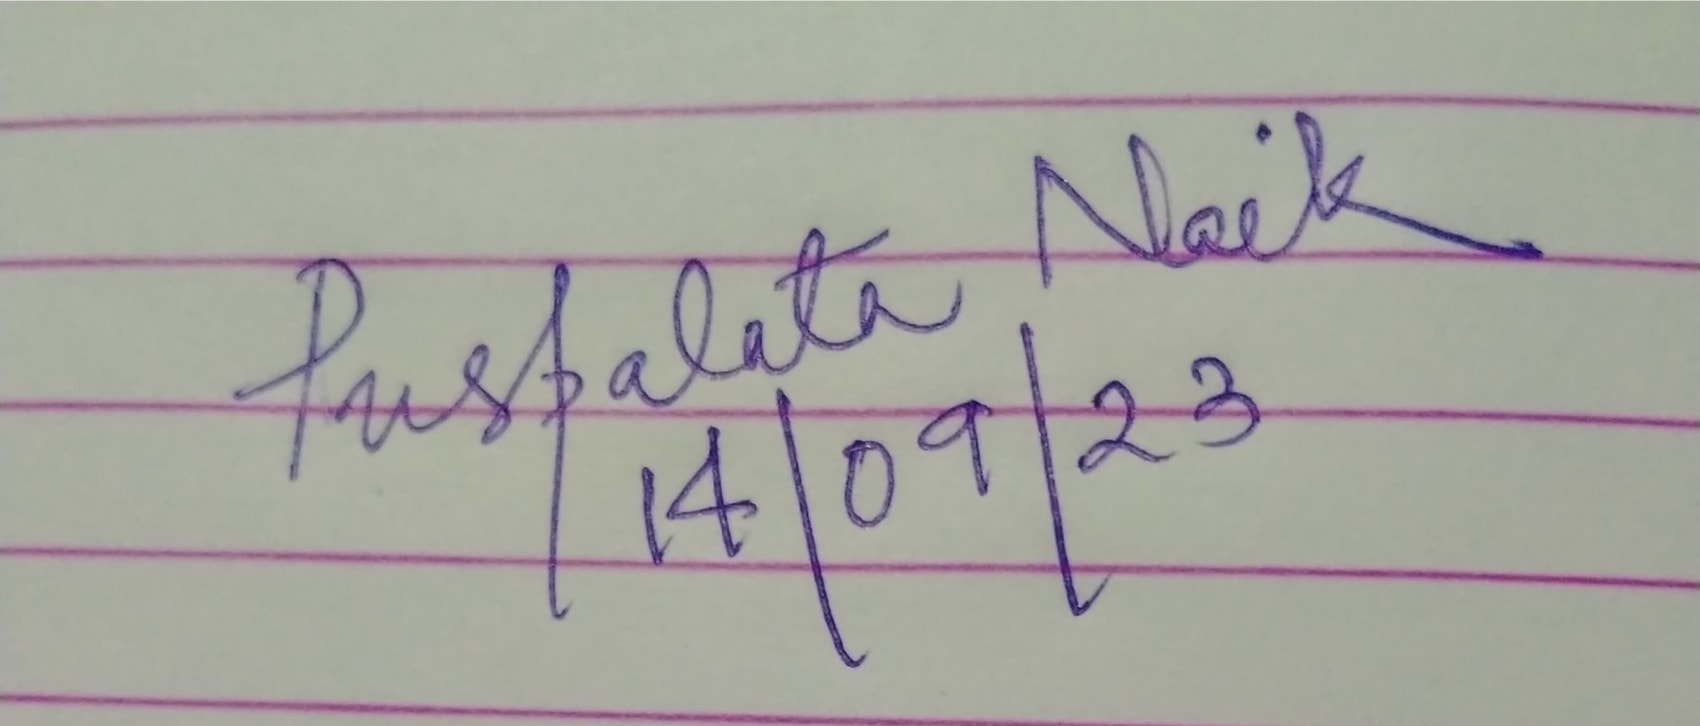 Puspalata Naik
14/09/23